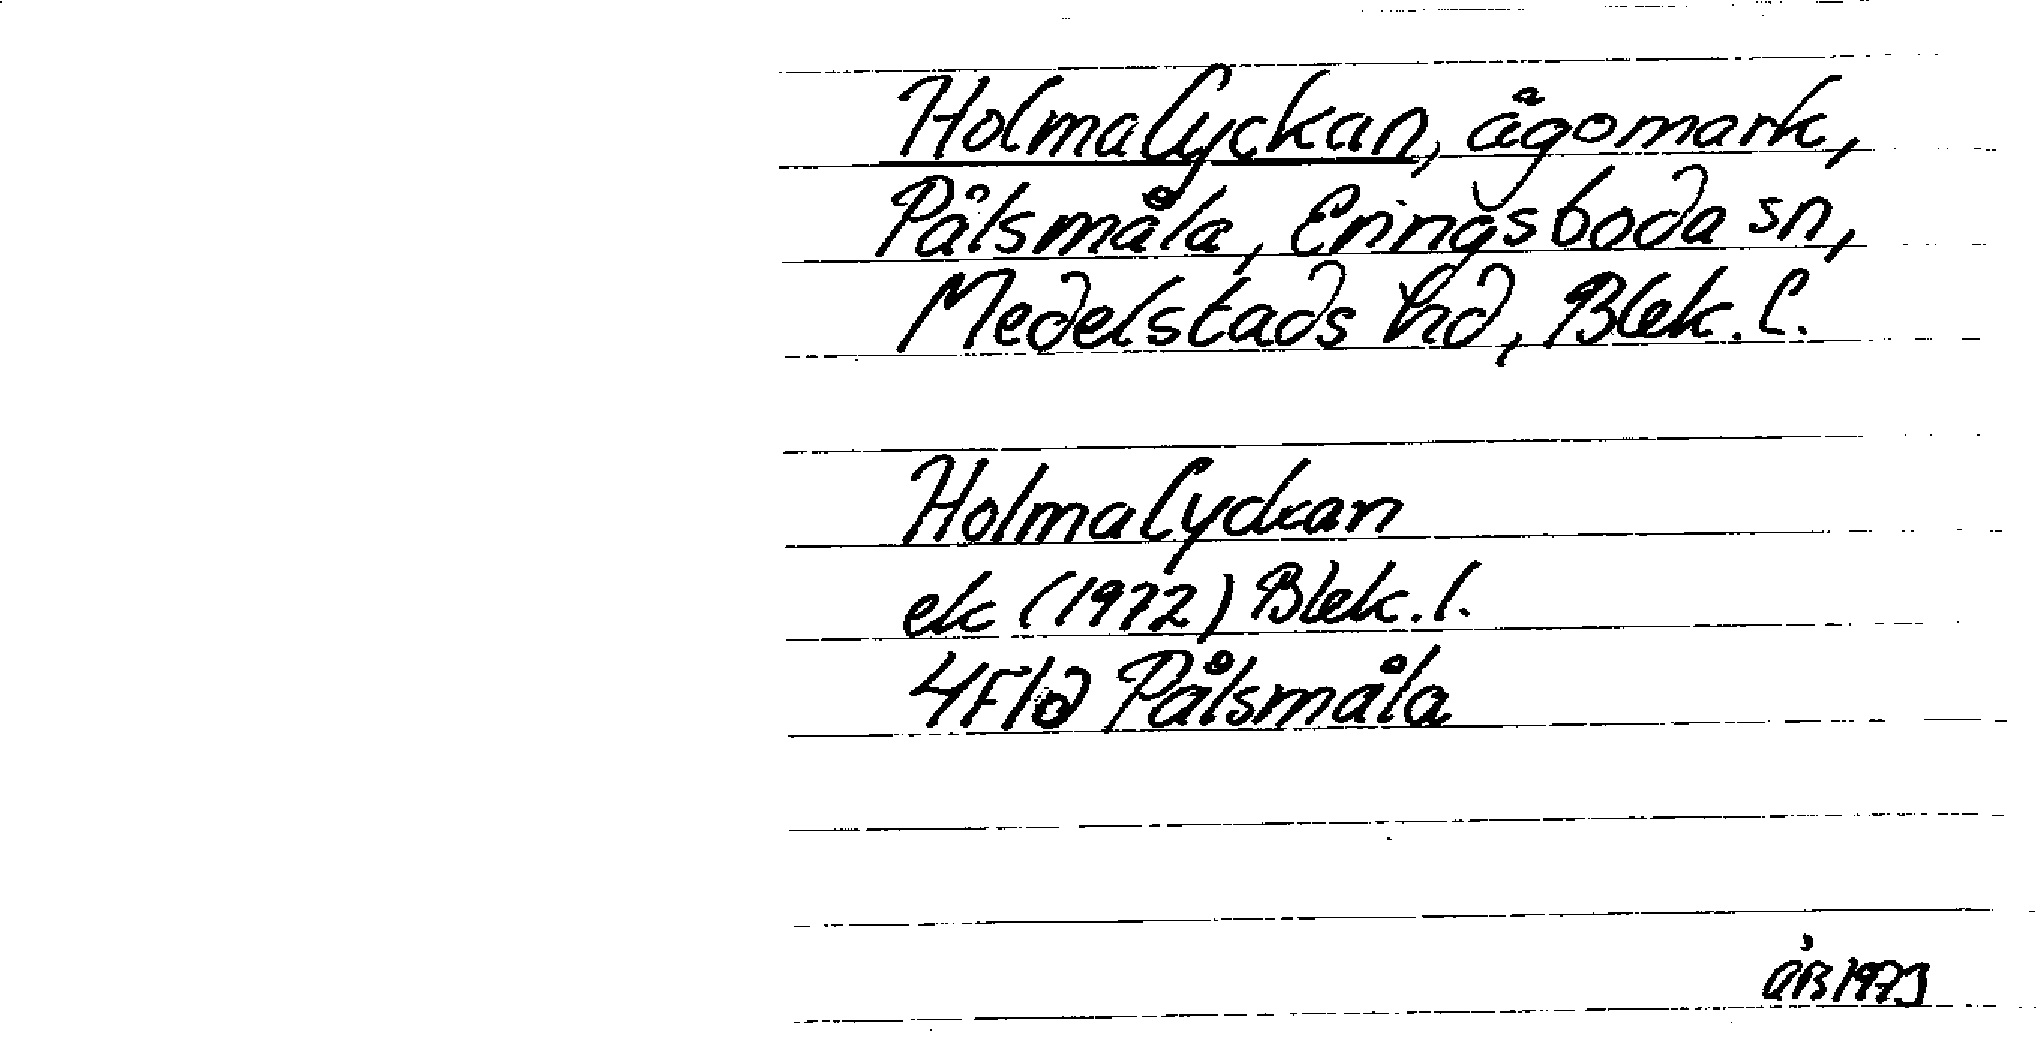 Holmalyckan, ägomark,
Pålsmåla, Eringsboda sn,
Medelstads hd, Blek. l.
Holmalyckan
ek (1972) Blek. l.
4F1d Pålsmåla
1973